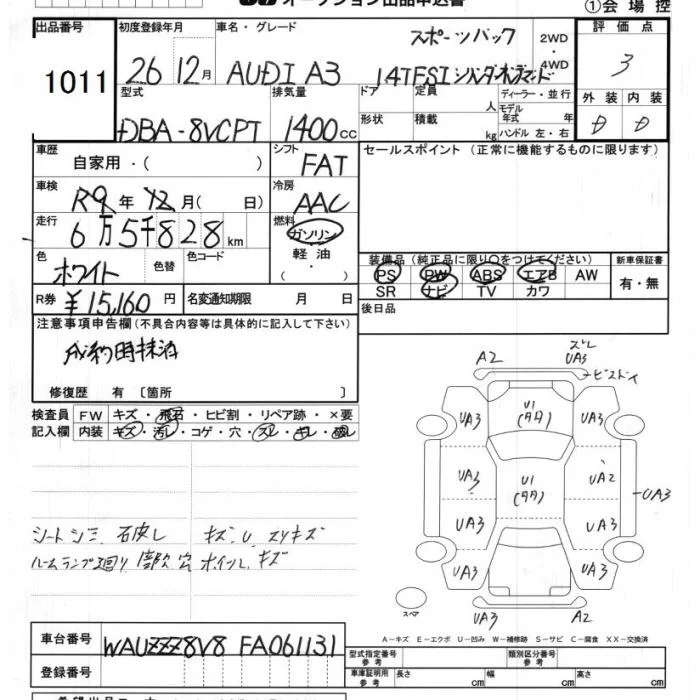 オークション出品申込書 ①会場控
出品番号 初度登録年月 車名・グレード 評価点
1011 26 12月 AUDI A3 スポーツバック 2WD・4WD 3
14TFSI
型式 排気量 ドア 定員 人 ディーラー・並行 外装 内装
DBA-8VCPT 1400cc 形状 積載 kg モデル年式 年 ハンドル 左・右 D D
車歴 シフト セールスポイント(正常に機能するものに限ります)
自家用・( ) FAT
車検 冷房
R9年12月( 日) AAC
走行 燃料
6万5千828km ガソリン
色 色替 色コード 軽油 装備品(純正品に限り○をつけてください) 新車保証書
ホワイト ( ・ ) PS PW ABS エアB AW 有・無
SR ナビ TV カワ
R券 ¥15,160円 名変通知期限 月 日 後日品
注意事項申告欄(不具合内容等は具体的に記入して下さい)
成約時抹消
修復歴 有 〔箇所 〕
検査員 FW キズ・飛石・ヒビ割・リペア跡・×要
記入欄 内装 キズ・汚レ・コゲ・穴・スレ・キレ・破レ
シートシミ キズ、U スリキズ
ルームランプ廻り 穴 ホイールキズ
A2 ズレ UA3
ビスドメ
UA3 U1(タタ) UA3
UA3 U1(タタ) UA2
UA3
UA3 UA3
UA3 UA3
スペア
UA3 A2
A-キズ E-エクボ U-凹み W-補修跡 S-サビ C-腐食 XX-交換済
車台番号 WAUZZZ8V8FA061131
型式指定番号 参考 類別区分番号 参考
登録番号 車庫証明用 参考 長さ cm 幅 cm 高さ cm